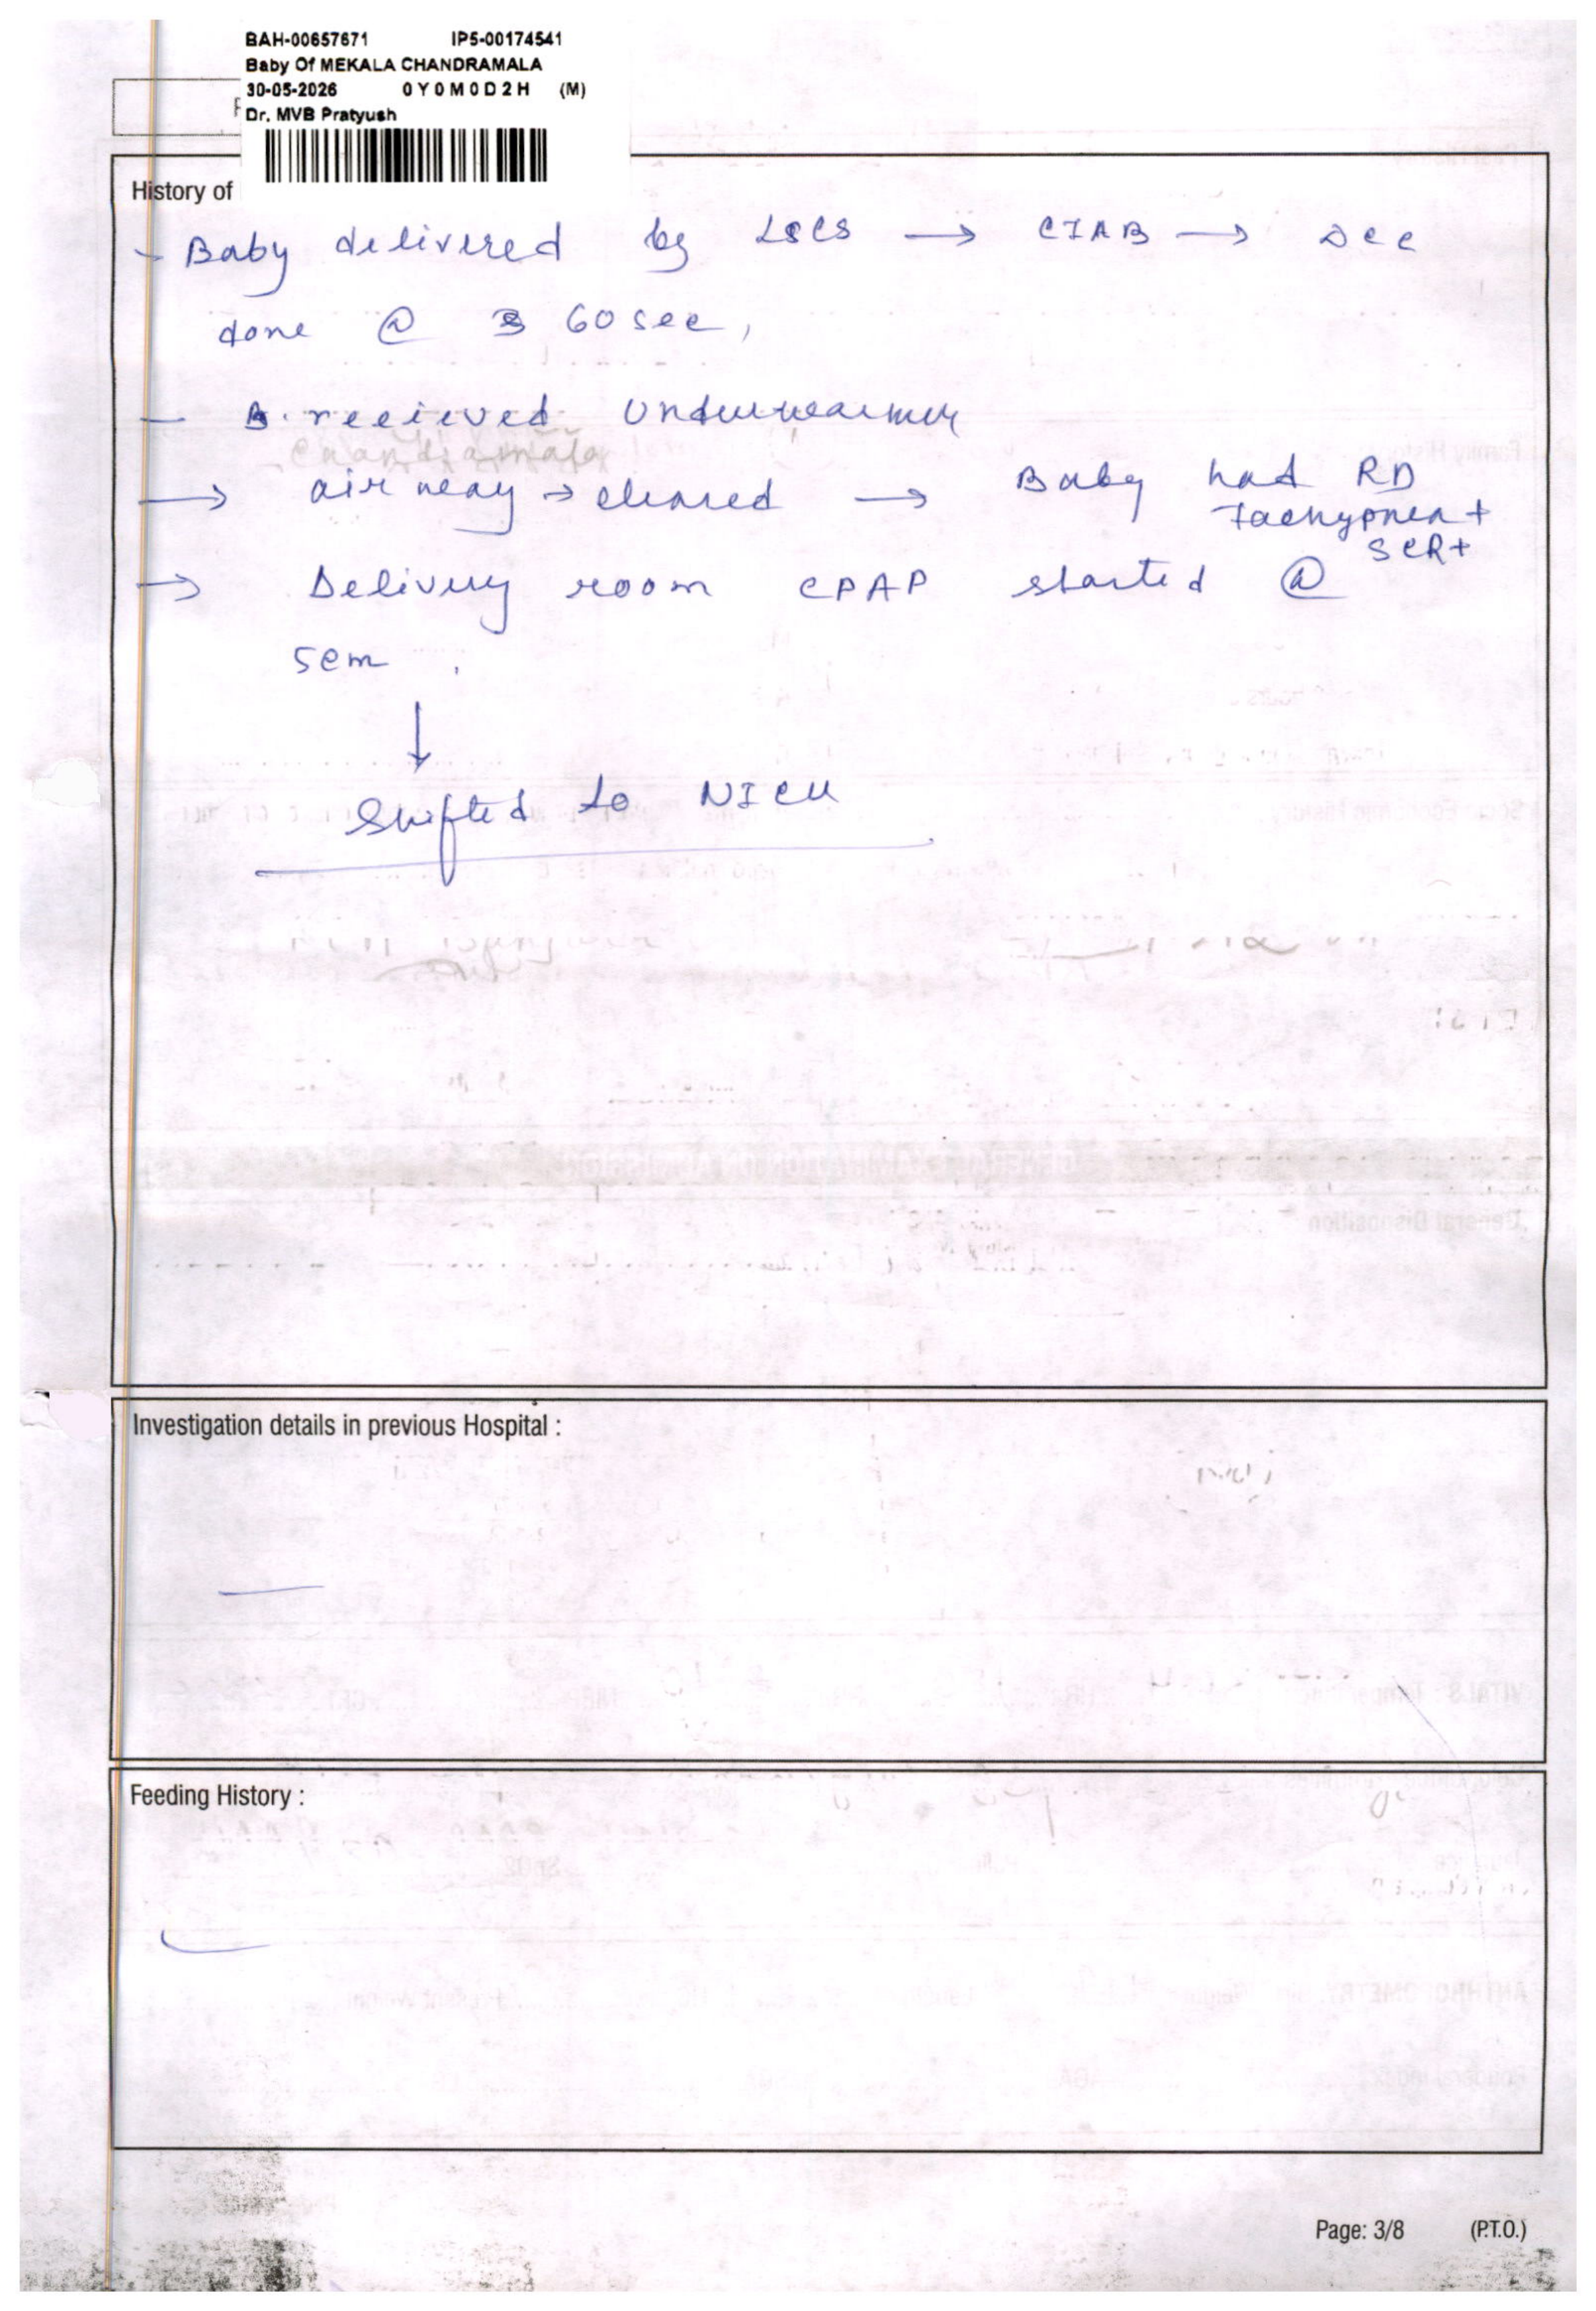 BAH-00657671 IP5-00174541
Baby Of MEKALA CHANDRAMALA
30-05-2026 0Y0M0D2H (M)
Dr. MVB Pratyush
History of
- Baby delivered by LSCS → CIAB → DCC
done @ 60 sec,
- B. recieved Underwarmer
→ airway → cleared → Baby had RD
Tachypnea +
SCR+
→ Delivery room CPAP started @
5cm .
↓
Shifted to NICU
Investigation details in previous Hospital :
—
Feeding History :
—
Page: 3/8 (P.T.O.)